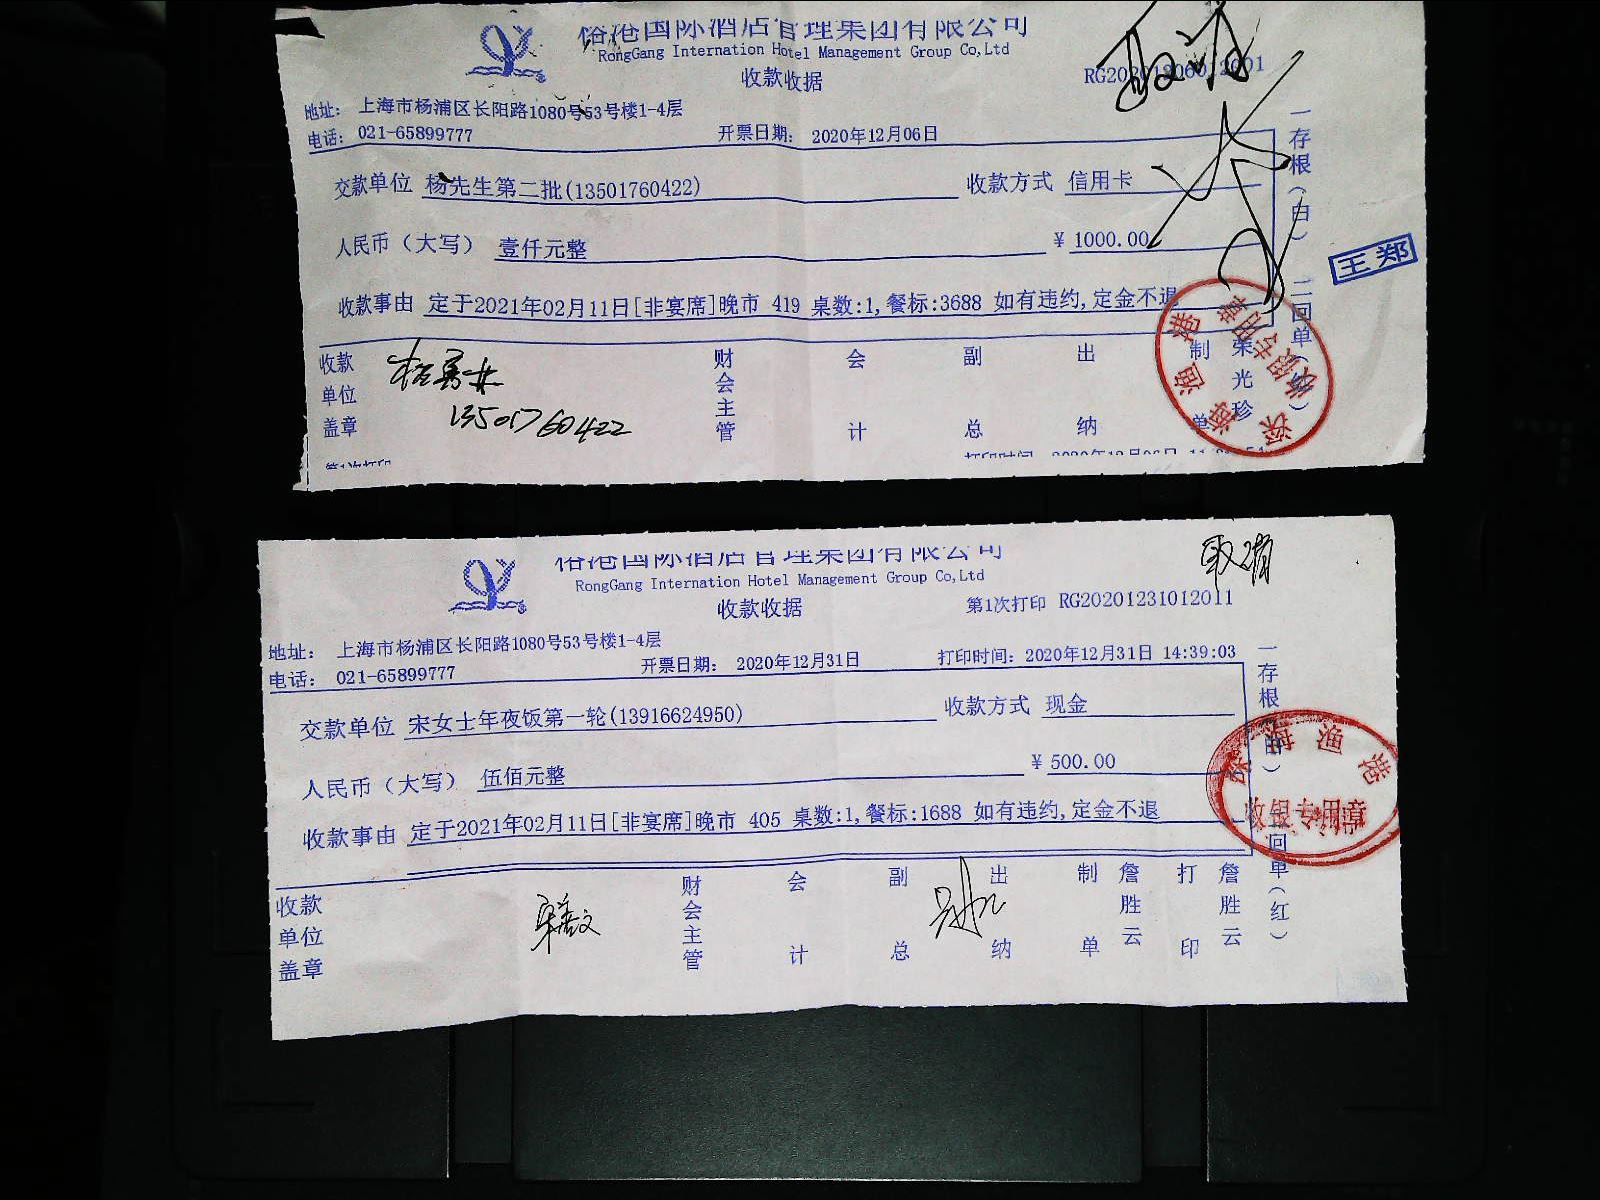 国际酒店管理集团有限公司
RongGang Internation Hotel Management Group Co,Ltd
收款收据
地址： 上海市杨浦区长阳路1080号53号楼1-4层
电话： 021-65899777 开票日期： 2020年12月06日
交款单位 杨先生第二批(13501760422) 收款方式 信用卡
人民币（大写） 壹仟元整 ￥ 1000.00
收款事由 定于2021年02月11日[非宴席]晚市 419 桌数:1,餐标:3688 如有违约,定金不退
收款单位盖章 13501760422 财会主管 会计 副总 出纳 制单 荣光珍
第1次打印 打印时间: 2020年12月06日
一存根（白） 二回单
王郑
深海渔港
收银专用章
国际酒店管理集团有限公司
RongGang Internation Hotel Management Group Co,Ltd
取消
收款收据 第1次打印 RG20201231012011
地址： 上海市杨浦区长阳路1080号53号楼1-4层
电话： 021-65899777 开票日期： 2020年12月31日 打印时间: 2020年12月31日 14:39:03
交款单位 宋女士年夜饭第一轮(13916624950) 收款方式 现金
人民币（大写） 伍佰元整 ￥ 500.00
收款事由 定于2021年02月11日[非宴席]晚市 405 桌数:1,餐标:1688 如有违约,定金不退
收款单位盖章 财会主管 会计 副总 出纳 制单 詹胜云 打印 詹胜云
一存根（白） 二回单（红）
深海渔港
收银专用章